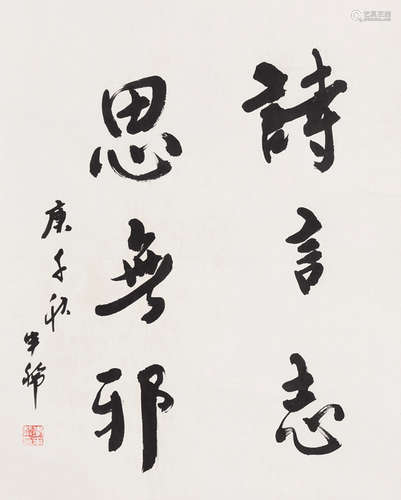 詩言志
思無邪
庚午秋